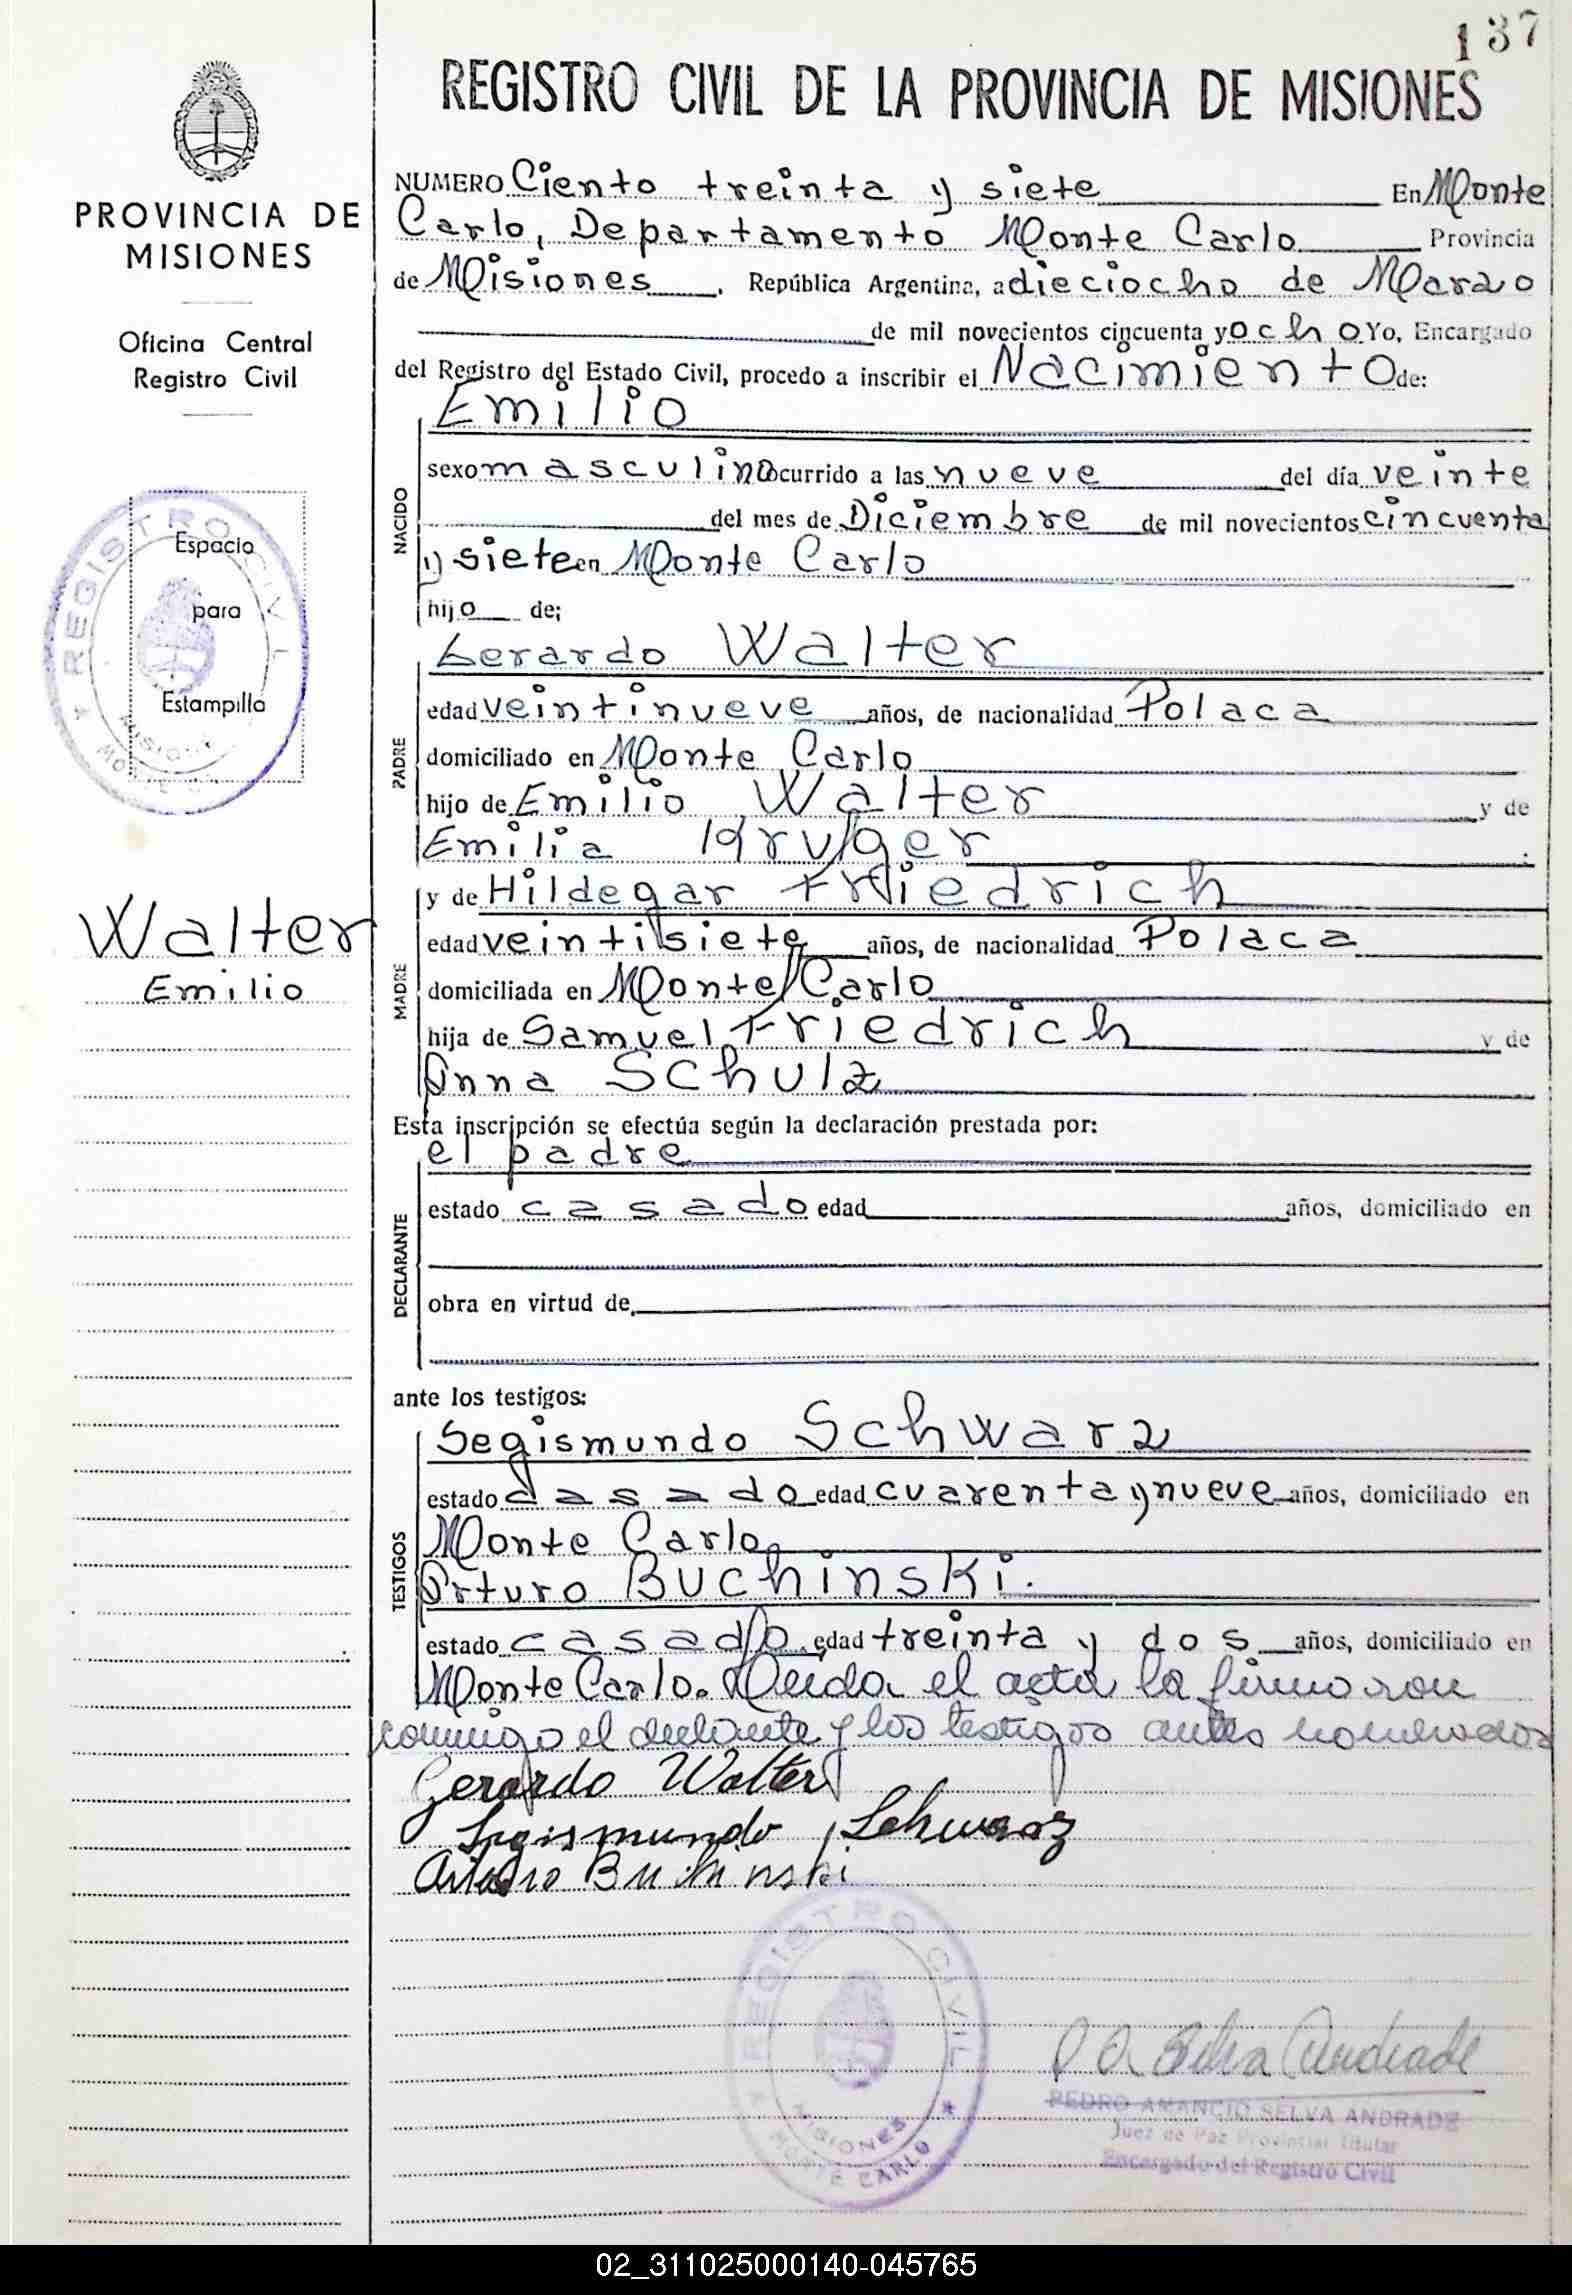 137
REGISTRO CIVIL DE LA PROVINCIA DE MISIONES
PROVINCIA DE
MISIONES
Oficina Central
Registro Civil
REGISTRO CIVIL
Espacio
para
Estampilla
MISIONES
Walter
Emilio
NUMERO Ciento treinta y siete En Monte
Carlo, Departamento Monte Carlo Provincia
de Misiones, República Argentina, a dieciocho de Marzo
de mil novecientos cincuenta y ocho Yo, Encargado
del Registro del Estado Civil, procedo a inscribir el Nacimiento de:
NACIDO
Emilio
sexo masculino ocurrido a las nueve del día veinte
del mes de Diciembre de mil novecientos cincuenta
y siete en Monte Carlo
hijo de;
PADRE
Gerardo Walter
edad veintinueve años, de nacionalidad Polaca
domiciliado en Monte Carlo
hijo de Emilio Walter y de
Emilia Kruger
MADRE
y de Hildegar Friedrich
edad veintisiete años, de nacionalidad Polaca
domiciliada en Monte Carlo
hija de Samuel Friedrich y de
Anna Schulz
Esta inscripción se efectúa según la declaración prestada por:
DECLARANTE
el padre
estado casado edad años, domiciliado en
obra en virtud de
ante los testigos:
TESTIGOS
Segismundo Schwarz
estado casado edad cuarenta y nueve años, domiciliado en
Monte Carlo
Arturo Buchinski.
estado casado edad treinta y dos años, domiciliado en
Monte Carlo. Leida el acta la firmaron
conmigo el declarante y los testigos antes nombrados
Gerardo Walter
Segismundo Schwarz
Arturo Buchinski
REGISTRO CIVIL
MISIONES
MONTE CARLO
P A Selva Andrade
PEDRO AMANCIO SELVA ANDRADE
Juez de Paz Provincial Titular
Encargado del Registro Civil
02_311025000140-045765